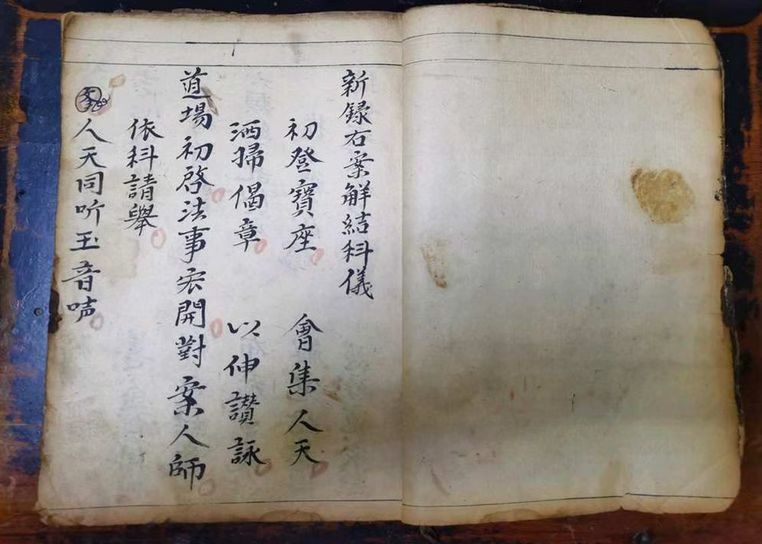 新録右案解結科儀
初登寳座　會集人天
洒掃偈章　以伸讃詠
道場初啓法事宏開對案人師
依科請舉
人天同听玉音吪